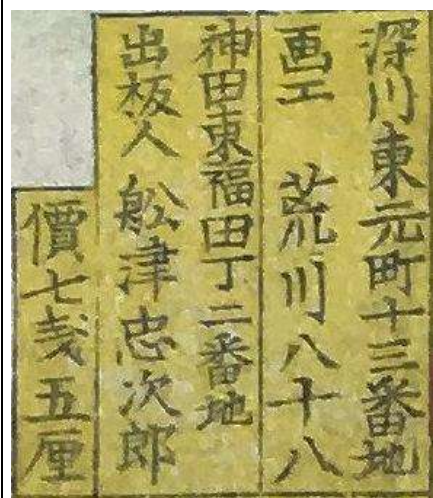 深川東元町十三番地
画工 荒川八十八
神田東福田丁二番地
出板人 舩津忠次郎
價七戋五厘